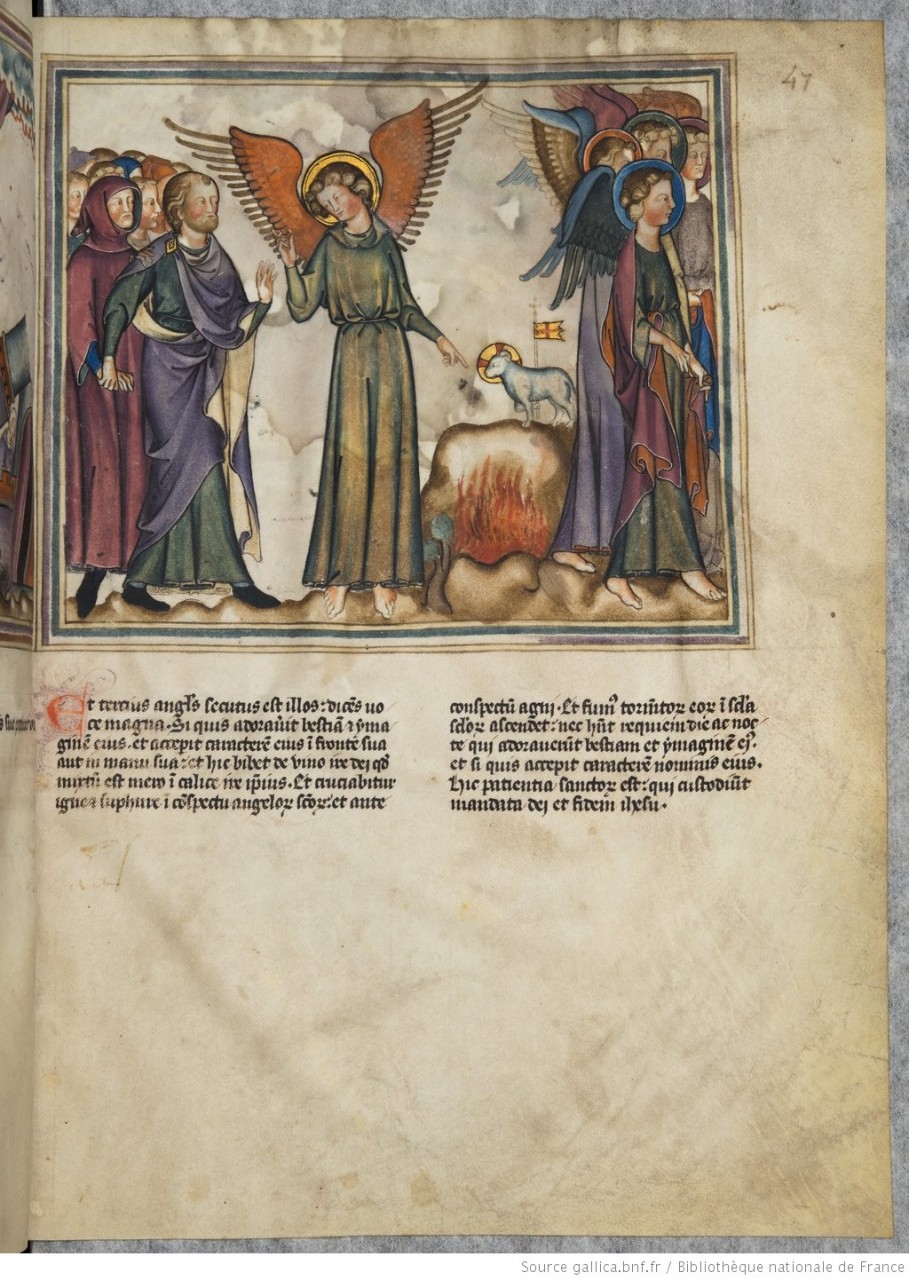 47
Et tercius angl's secutus est illos: dicēs uo
ce magna. Si quis adorau'it bestiā ⁊ yma
ginē eius. et accepit caracterē eius ī fronte sua
aut in manu sua: et hic bibet de uino ire dei qd̄
mixtū est mero ī calice ire ip̄ius. Et cruciabitur
igne ⁊ sulphure ī cōspectu angelor̨ sc̄or̨: et ante
conspectū agni. Et fum' tormētor̨ eor̨ ī sc̄la
sc̄lor̨ ascendet: nec hn̄t requiem die ac noc
te qui adorauerūt bestiam et ymaginem ei'.
et si quis accepit caracterē nominis eius.
Hic patientia sanctor̨ est: qui custodiūt
mandata dei et fidem ihesu.
Source gallica.bnf.fr / Bibliothèque nationale de France